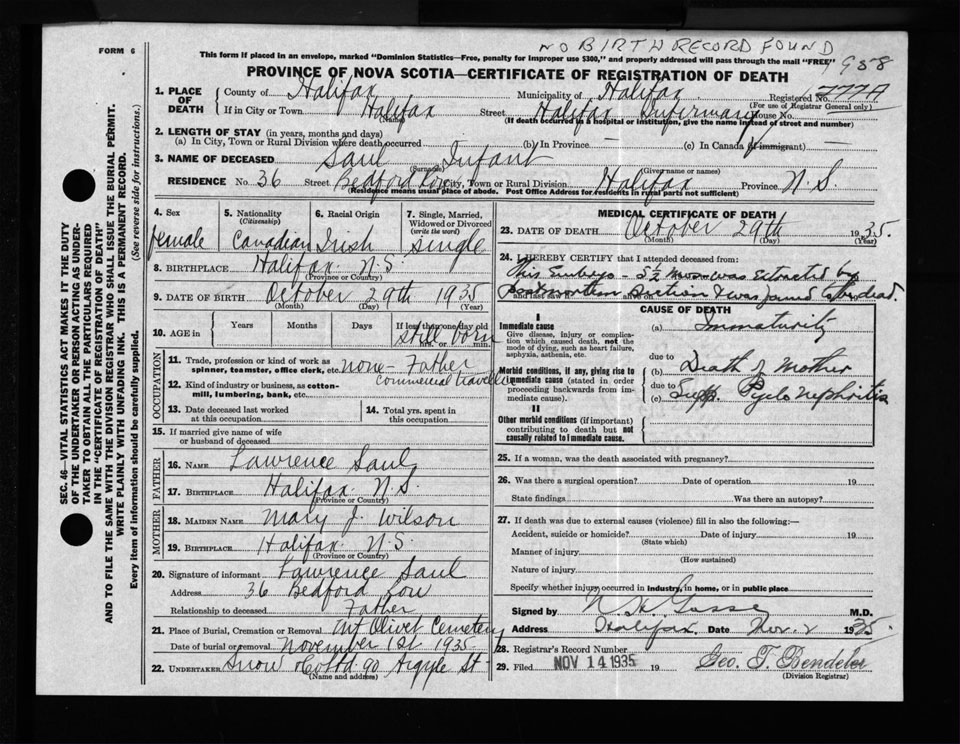 FORM 6
NO BIRTH RECORD FOUND
This form if placed in an envelope, marked "Dominion Statistics—Free, penalty for improper use $300," and properly addressed will pass through the mail "FREE"
PROVINCE OF NOVA SCOTIA—CERTIFICATE OF REGISTRATION OF DEATH
SEC. 46—VITAL STATISTICS ACT MAKES IT THE DUTY
OF THE UNDERTAKER OR PERSON ACTING AS UNDER-
TAKER TO OBTAIN ALL THE PARTICULARS REQUIRED
IN THE "CERTIFICATE OF REGISTRATION OF DEATH"
AND TO FILE THE SAME WITH THE DIVISION REGISTRAR WHO SHALL ISSUE THE BURIAL PERMIT.
WRITE PLAINLY WITH UNFADING INK. THIS IS A PERMANENT RECORD.
Every item of information should be carefully supplied. (See reverse side for instructions.)
1. PLACE OF DEATH
County of Halifax Municipality of Halifax Registered No.
(For use of Registrar General only)
If in City or Town Halifax Street Halifax Infirmary House No.
(Name) (If death occurred in a hospital or institution, give the name instead of street and number)
2. LENGTH OF STAY (in years, months and days)
(a) In City, Town or Rural Division where death occurred (b) In Province (c) In Canada (if immigrant)
3. NAME OF DECEASED Saul Infant
(Surname) (Given name or names)
RESIDENCE No. 36 Street Bedford Row City, Town or Rural Division Halifax Province N.S.
(Residence means usual place of abode. Post Office Address for residents in rural parts not sufficient)
4. Sex
female
5. Nationality
(Citizenship)
Canadian
6. Racial Origin
Irish
7. Single, Married,
Widowed or Divorced
(write the word)
single
8. BIRTHPLACE Halifax N.S.
(Province or Country)
9. DATE OF BIRTH October 29th 1935
(Month) (Day) (Year)
10. AGE in
Years Months Days If less than one day old
still born
hrs. or min.
OCCUPATION
11. Trade, profession or kind of work as
spinner, teamster, office clerk, etc. none - Father
commercial traveller
12. Kind of industry or business, as cotton-
mill, lumbering, bank, etc.
13. Date deceased last worked
at this occupation
14. Total yrs. spent in
this occupation
15. If married give name of wife
or husband of deceased
FATHER
16. NAME Lawrence Saul
17. BIRTHPLACE Halifax N.S.
(Province or Country)
MOTHER
18. MAIDEN NAME Mary J. Wilson
19. BIRTHPLACE Halifax N.S.
(Province or Country)
20. Signature of informant Lawrence Saul
Address 36 Bedford Row
Relationship to deceased Father
21. Place of Burial, Cremation or Removal Mt Olivet Cemetery
Date of burial or removal November 1st 1935
22. UNDERTAKER Snow & Co Ltd 90 Argyle St
(Name and address)
MEDICAL CERTIFICATE OF DEATH
23. DATE OF DEATH October 29th 1935.
(Month) (Day) (Year)
24. I HEREBY CERTIFY that I attended deceased from:
This Embryo - 5½ mos was extracted by
postmortem Section & was found to be dead.
CAUSE OF DEATH
I
Immediate cause
Give disease, injury or complica-
tion which caused death, not the
mode of dying, such as heart failure,
asphyxia, asthenia, etc.
(a) Immaturity
due to
Morbid conditions, if any, giving rise to
immediate cause (stated in order
proceeding backwards from im-
mediate cause).
(b) Death of Mother
due to
(c) Supp. Pyelo Nephritis
II
Other morbid conditions (if important)
contributing to death but not
causally related to immediate cause.
25. If a woman, was the death associated with pregnancy?
26. Was there a surgical operation? Date of operation 19
State findings Was there an autopsy?
27. If death was due to external causes (violence) fill in also the following:—
Accident, suicide or homicide? Date of injury 19
(State which)
Manner of injury
(How sustained)
Nature of injury
Specify whether injury occurred in industry, in home, or in public place
Signed by M.D.
Address Halifax. Date Nov. 2 1935.
28. Registrar's Record Number
29. Filed NOV 14 1935 19 Geo. T. Bendeler
(Division Registrar)